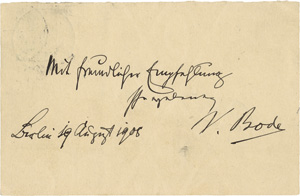 Mit freundlicher Empfehlung
W. Bode
Berlin 19 August 1908